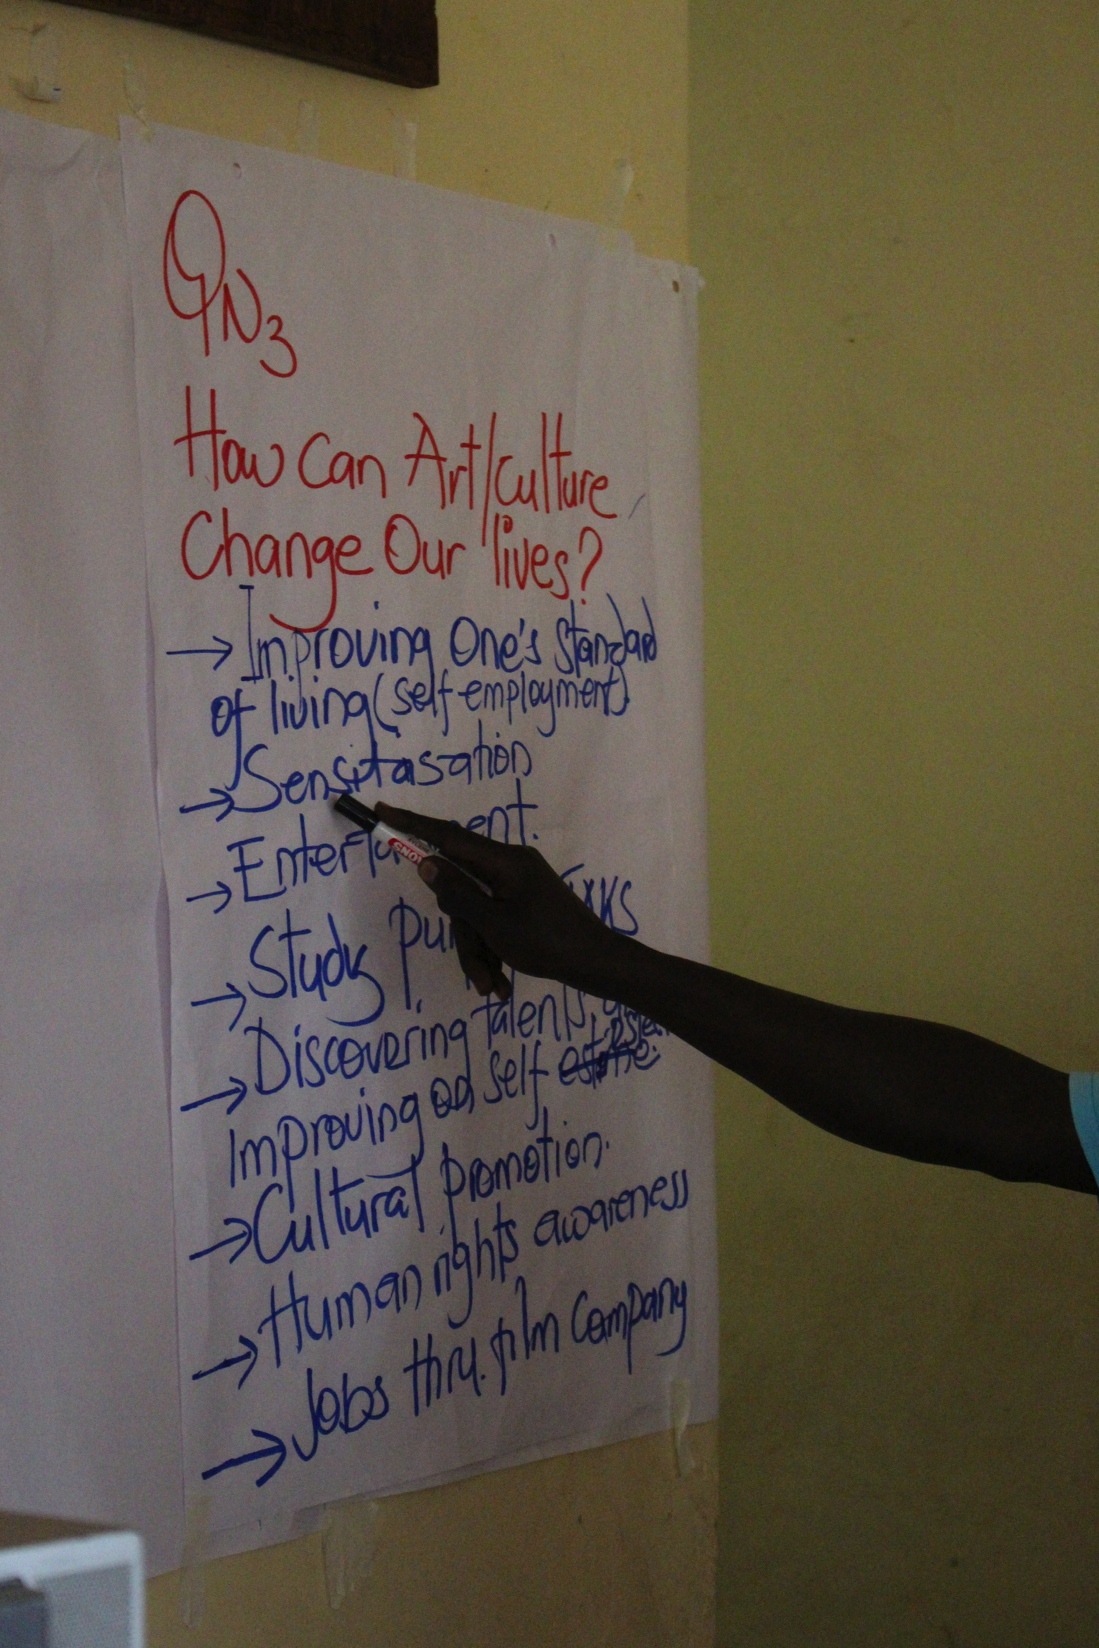 QN3
How Can Art/culture
Change Our lives?
→ Improving One's Standard
of living (self employment)
→ Sensitasation
→ Entertainment.
→ Study
→ Discovering talents,
Improving on self
→ Cultural promotion.
→ Human rights awareness
→ Jobs thru. film Company